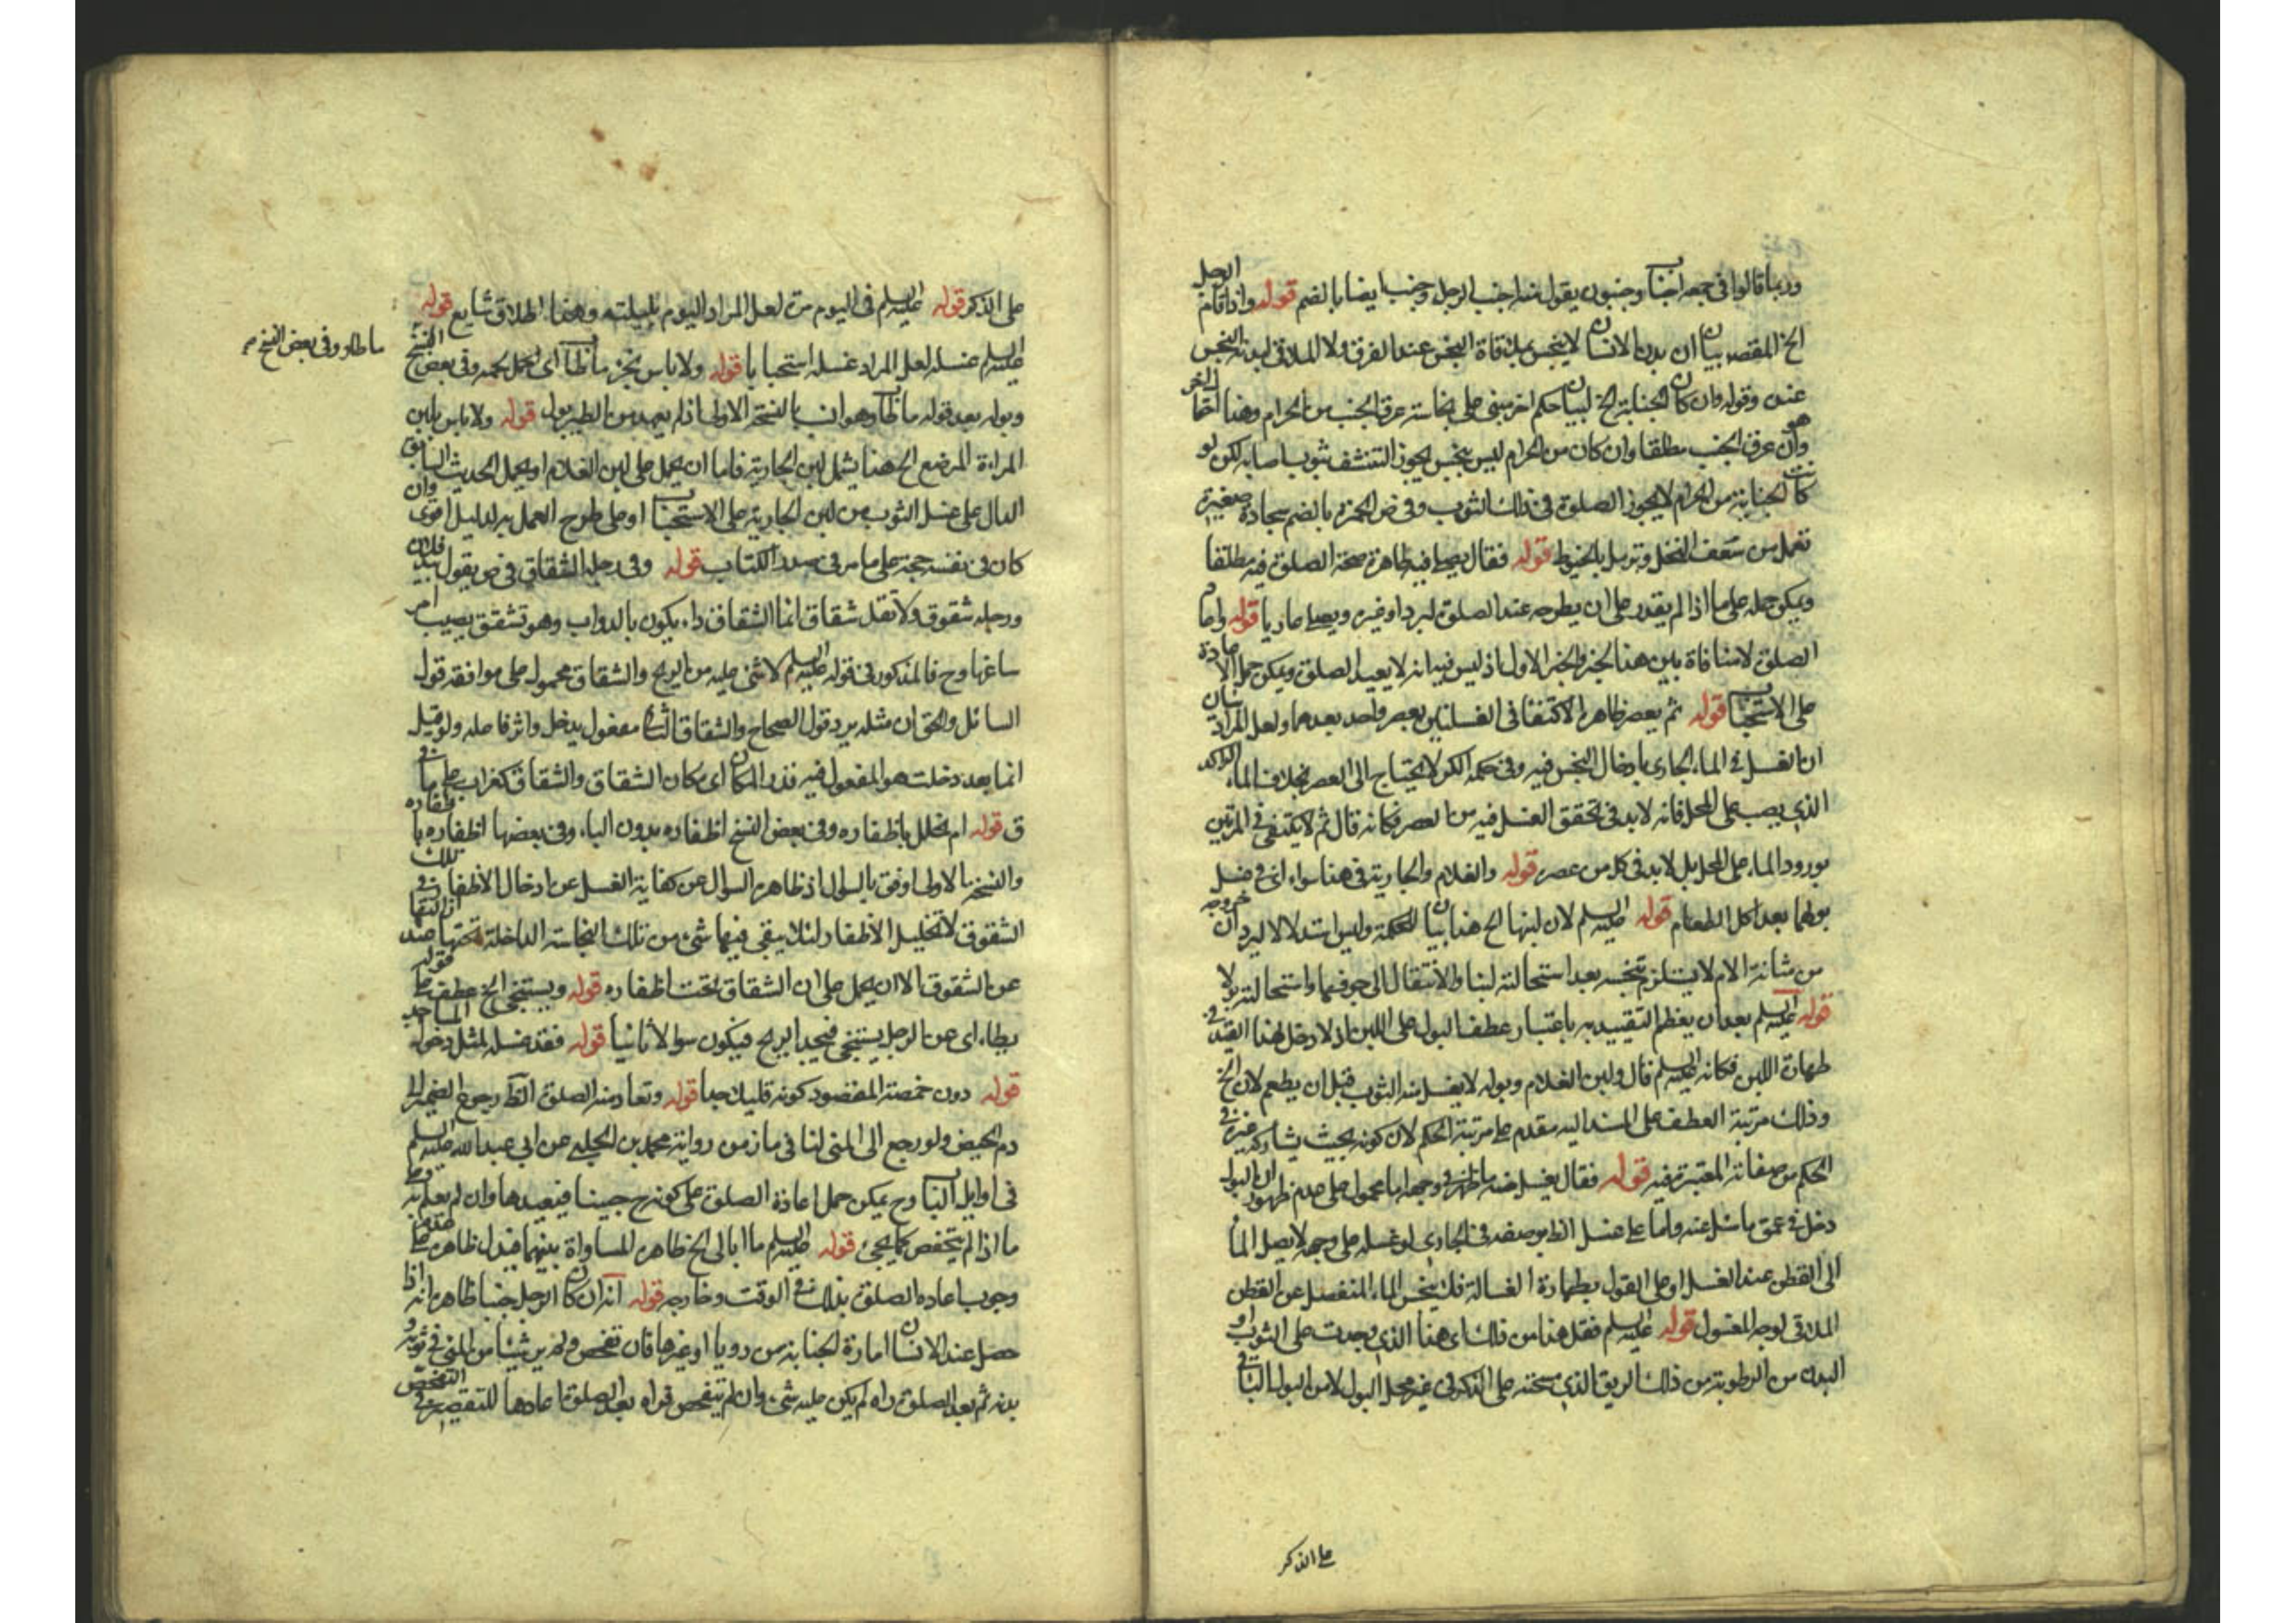 وربما قالوا في جمعه اجناب وجنبون يقول منه اجنب الرجل وجنب ايضا بالضم قوله واذا قام الرجل
الخ المقصد بيان ان بدن الانسان لا ينجس بملاقاة النجس عند الفرق ولا الملاقى لبدنه النجس
عنده وقوله وان كان الجنابة الخ لبيان حكم اخر مبنى على نجاسة عرق الجنب من الحرام وهذا
وان عرق الجنب مطلقا وان كان من الحرام ليس بنجس يجوز التنشف بثوب اصابه لكن لو
كانت الجنابة من الحرام لا يجوز الصلوة في ذلك الثوب وفي ض الخمرة بالضم سجادة صغيرة
تعمل من سعف النخل وترمل بالخيوط قوله فقال يصلي فيه ظاهره صحة الصلوة فيه مطلقا
ويمكن حمله على ما اذا لم يقدر على ان يطرحه عند الصلوة لبرد او غيره ويصلي عاريا قوله واعاد
الصلوة لا منافاة بين هذا الخبر والخبر الاول اذ ليس فيه انه لا يعيد الصلوة ويمكن حمل الاعادة
على الاستحباب قوله ثم يعصر ظاهره الاكتفاء في الغسلتين بعصر واحد بعدهما ولعل المراد بيان
ان الغسل في الماء الجاري بادخال النجس فيه وفي حكمه الكر لا يحتاج الى العصر بخلاف الماء الراكد
الذي يصب على المحل فانه لا بد في تحقق الغسل فيه من العصر فكانه قال ثم لا يكتفى في المرتين
بورود الماء على المحل بل لا بد في كل من عصر قوله والغلام والجارية في هذا سواء اى في غسل
بولهما بعد اكل الطعام قوله عليه السلم لان لبنها الخ هذا بيان للحكمة وليس استدلالا ليرد ان خروجه
من مثانة الام لا يستلزم تنجسه بعد استحالته لبنا والانتقال الى جوفها واستحالته بولا
قوله عليه السلم بعد ان يفطم التقييد به باعتبار عطف البول على اللبن اذ لا دخل لهذا القيد في
طهارة اللبن فكانه عليه السلم قال ولبن الغلام وبوله لا يغسل منه الثوب قبل ان يطعم لان الخ
وذلك مرتبة العطف على المسند اليه مقدم على مرتبة الحكم لان كونه بحيث يشاركه غيره في
الحكم من صفاته المعتبرة فيه قوله فقال يغسل منه ما ظهر في وجهه اما محمول على عدم ظهور ان البول
دخل في عمق ما سئل عنه واما على غسل الظاهر وصفه في الجاري لو غسله على وجه لا يصل الماء
الى القطن عند الغسل او على القول بطهارة الغسالة فلا ينجس الماء المنفصل عن القطن
الملاقى لوجه المغسول قوله عليه السلم فقل هذا من ذلك اى هذا الذي وجدت على الثوب او
البدن من الرطوبة من ذلك الريق الذي مسحته على الذكر في غير محل البول لا من البول الباقي
على الذكر
على الذكر قوله عليه السلم في اليوم مرة لعل المراد اليوم بليلته وهذا اطلاق شايع قوله
عليه السلم غسله لعل المراد غسله استحبابا قوله ولا باس بخرء ما طار اى يحمل لحمه وفي بعض النسخ
ما طار وفي بعض النسخ
وبوله بعد قوله ما طار وهو انسب بالنسخة الاولى اذ لم يعهد من الطير بول قوله ولا باس بلبن
المراءة المرضع الخ هذا يشمل لبن الجارية فاما ان يحمل على لبن الغلام او يحمل الحديث السابق
الدال على غسل الثوب من لبن الجارية على الاستحباب او على طرح العمل به لدليل اقوى وان
كان في نفسه حجة على ما مر في صدر الكتاب قوله وفي رجله الشقاق في ض يقول بيد فلان
ورجله شقوق ولا تقل شقاق انما الشقاق داء يكون بالدواب وهو تشقق يصيب
ارساغها وح فالمذكور في قوله عليه السلم لا شئ عليه من الريح والشقاق محمول على موافقة قول
السائل والحق ان مثله يرد قول الصحاح والشقاق الثاني مفعول يدخل واثر فاعله ولو قيل
انما بعد دخلت هو المفعول فيه نذر المكان اى مكان الشقاق والشقاق كغراب على ما في
ق قوله ام يخلل باظفاره وفي بعض النسخ اظفاره بدون الباء وفي بعضها اظفاره با
والنسخة الاولى اوفق بالسؤال اذ ظاهره السوال عن كفاية الغسل عن ادخال الأظفار في تلك
الشقوق لا تخليل الأظفار لئلا يبقى فيها شئ من تلك النجاسة الداخلة تحتها عند ازالتها
عن الشقوق الا ان يحمل على ان الشقاق تحت اظفاره قوله ويستنجى الخ عطف على قوله
يطاء اى عن الرجل يستنجى فيجد الريح فيكون سوالا ثانيا قوله فقد غسله لمثل دخول الماء
قوله دون حمصة المقصود كونه قليلا جدا قوله وتعاد منه الصلوة الظ رجوع الضمير الى
دم الحيض ولو رجع الى المنى لنافى ما مر من رواية محمد بن الحلبي عن ابي عبد الله عليه السلم
في اوايل الباب وح يمكن حمل اعادة الصلوة على كونه ح جنبا فيعيدها وان لم يعلم به وعلى
ما اذا لم يتفحص كما يجئ قوله عليه السلم ما ابالى الخ ظاهره المساواة بينهما فيدل ظاهره على عدم
وجوب اعاده الصلوة بذلك في الوقت وخارجه قوله انه ان كان الرجل جنبا ظاهره انه اذا
حصل عند الانسان امارة الجنابة من رويا او غيرها فان تفحص ولم ير شيئا من المنى في ثوبه و
بدنه ثم بعد الصلوة راه لم يكن عليه شئ وان لم يتفحص فراه بعد الصلوة اعادها للتقصير في التفحص